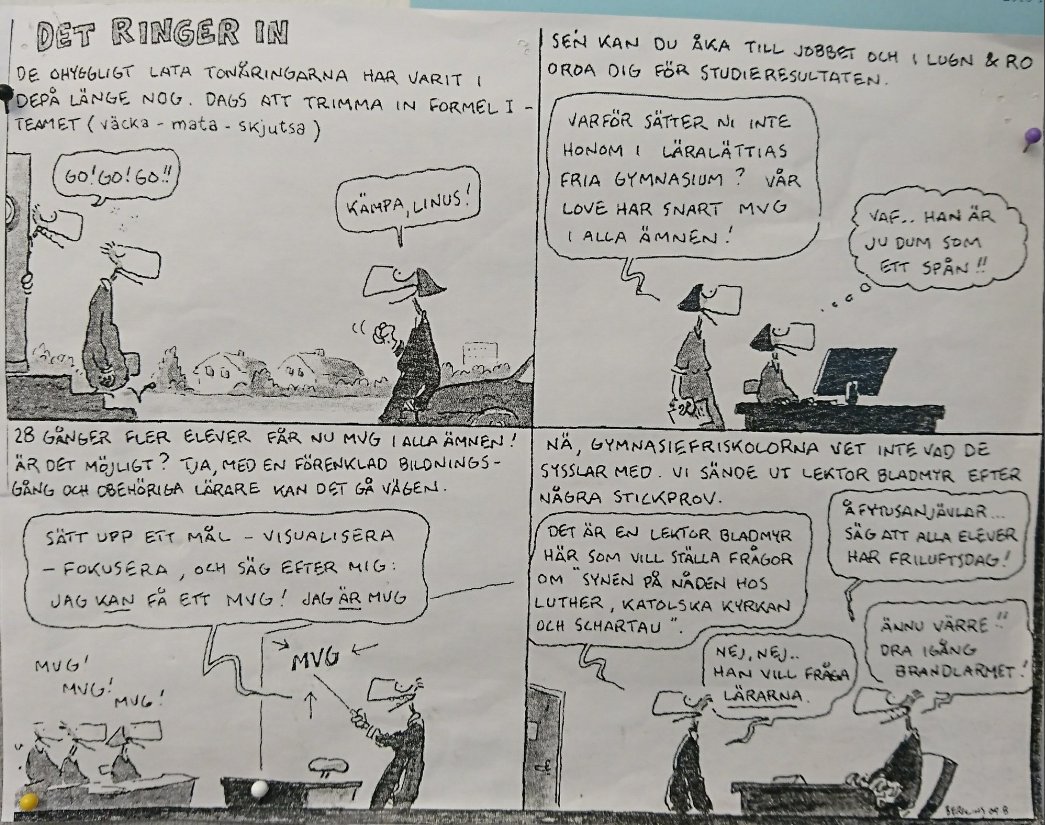 DET RINGER IN
DE OHYGGLIGT LATA TONÅRINGARNA HAR VARIT I
DEPÅ LÄNGE NOG. DAGS ATT TRIMMA IN FORMEL I -
TEAMET (väcka - mata - skjutsa)
GO! GO! GO!!
KÄMPA, LINUS!
SEN KAN DU ÅKA TILL JOBBET OCH I LUGN & RO
OROA DIG FÖR STUDIERESULTATEN.
VARFÖR SÄTTER NI INTE
HONOM I LÄRALÄTTIAS
FRIA GYMNASIUM? VÅR
LOVE HAR SNART MVG
I ALLA ÄMNEN!
VAF.. HAN ÄR
JU DUM SOM
ETT SPÅN!!
28 GÅNGER FLER ELEVER FÅR NU MVG I ALLA ÄMNEN!
ÄR DET MÖJLIGT? TJA, MED EN FÖRENKLAD BILDNINGS-
GÅNG OCH OBEHÖRIGA LÄRARE KAN DET GÅ VÄGEN.
SÄTT UPP ETT MÅL - VISUALISERA
- FOKUSERA, OCH SÄG EFTER MIG:
JAG KAN FÅ ETT MVG! JAG ÄR MVG
MVG!
MVG!
MVG!
MVG
NÄ, GYMNASIEFRISKOLORNA VET INTE VAD DE
SYSSLAR MED. VI SÄNDE UT LEKTOR BLADMYR EFTER
NÅGRA STICKPROV.
DET ÄR EN LEKTOR BLADMYR
HÄR SOM VILL STÄLLA FRÅGOR
OM "SYNEN PÅ NÅDEN HOS
LUTHER, KATOLSKA KYRKAN
OCH SCHARTAU".
ÅFYTUSANJÄVLAR...
SÄG ATT ALLA ELEVER
HAR FRILUFTSDAG!
NEJ, NEJ..
HAN VILL FRÅGA
LÄRARNA.
ÄNNU VÄRRE!!
DRA IGÅNG
BRANDLARMET!